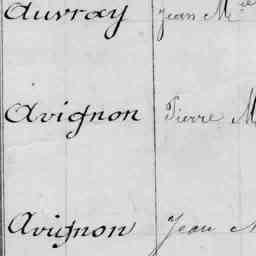 Auvray Jean M.el
Avignon Pierre M
Avignon Jean